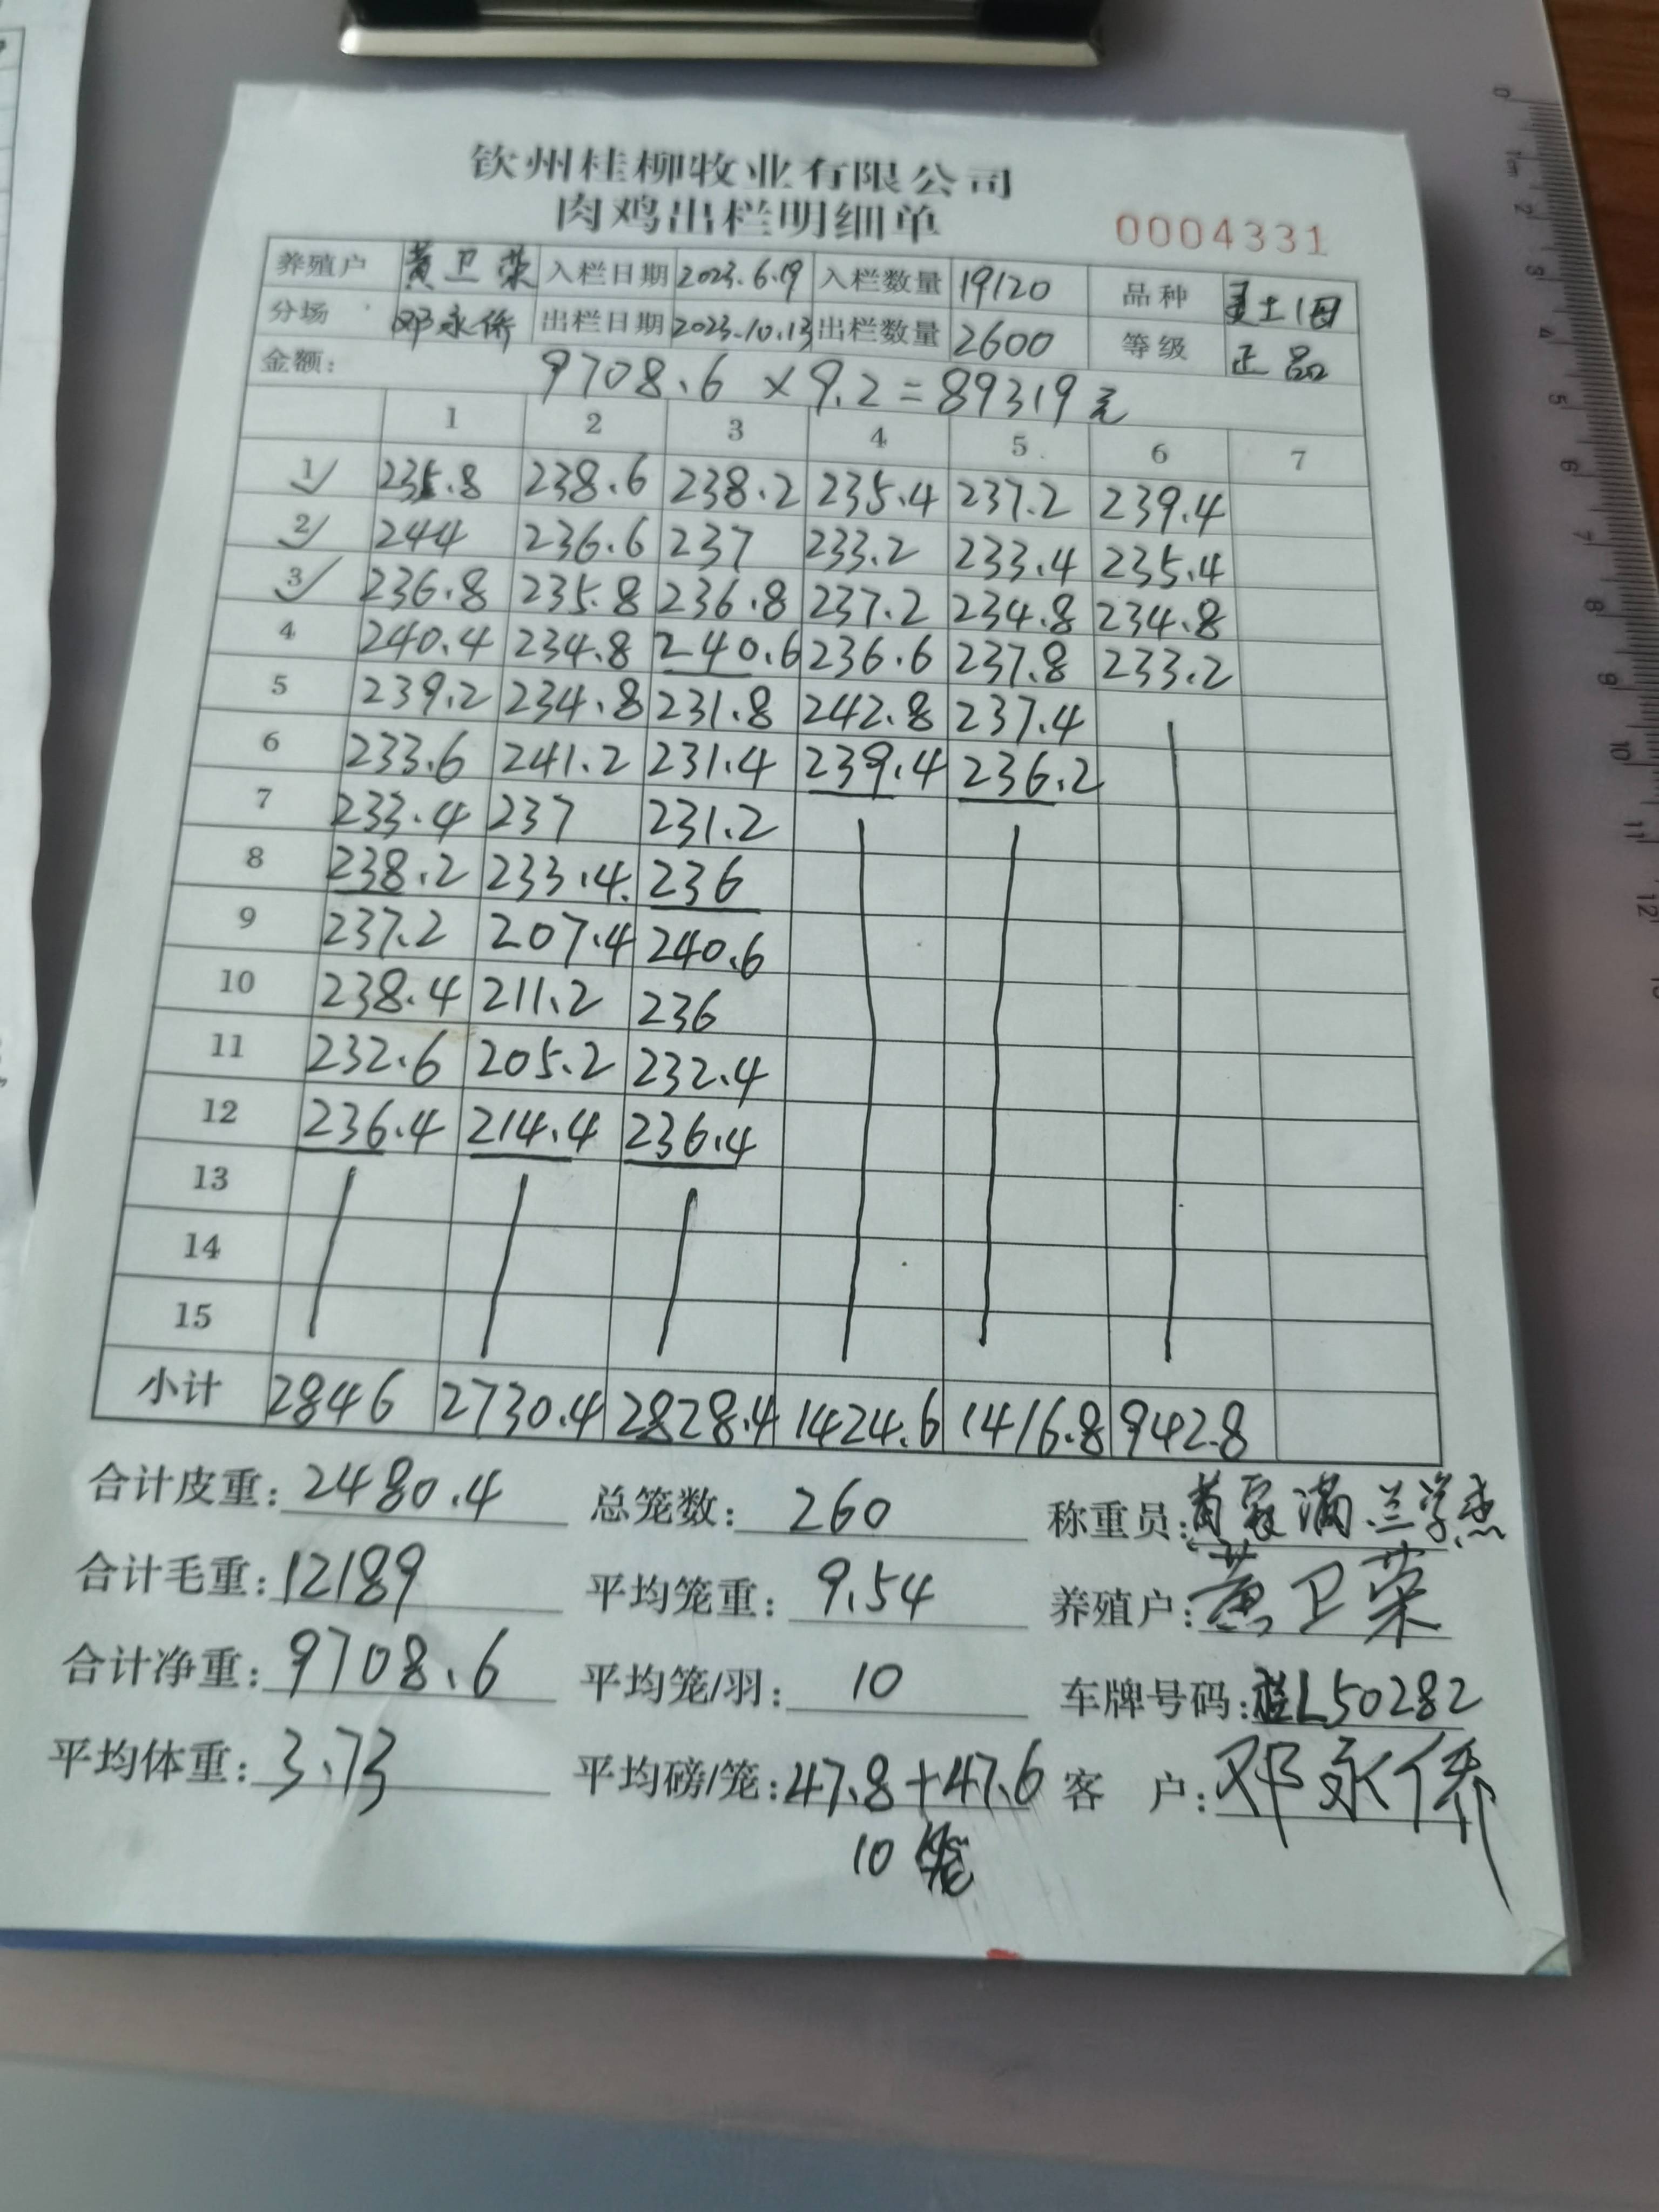 钦州桂柳牧业有限公司
肉鸡出栏明细单 0004331
养殖户 黄卫荣 入栏日期 2023.6.19 入栏数量 19120 品种 土1母
分场 邓永侨 出栏日期 2023.10.13 出栏数量 2600 等级 正品
金额: 9708.6×9.2=89319元
1 2 3 4 5 6 7
1 235.8 238.6 238.2 235.4 237.2 239.4
2 244 236.6 237 233.2 233.4 235.4
3 236.8 235.8 236.8 237.2 234.8 234.8
4 240.4 234.8 240.6 236.6 237.8 233.2
5 239.2 234.8 231.8 242.8 237.4
6 233.6 241.2 231.4 239.4 236.2
7 233.4 237 231.2
8 238.2 233.4 236
9 237.2 207.4 240.6
10 238.4 211.2 236
11 232.6 205.2 232.4
12 236.4 214.4 236.4
13
14
15
小计 2846 2730.4 2828.4 1424.6 1416.8 942.8
合计皮重: 2480.4 总笼数: 260 称重员: 黄家满 兰学杰
合计毛重: 12189 平均笼重: 9.54 养殖户: 黄卫荣
合计净重: 9708.6 平均笼/羽: 10 车牌号码: 桂L50282
平均体重: 3.73 平均磅/笼: 47.8+47.6 客 户: 邓永侨
10笼